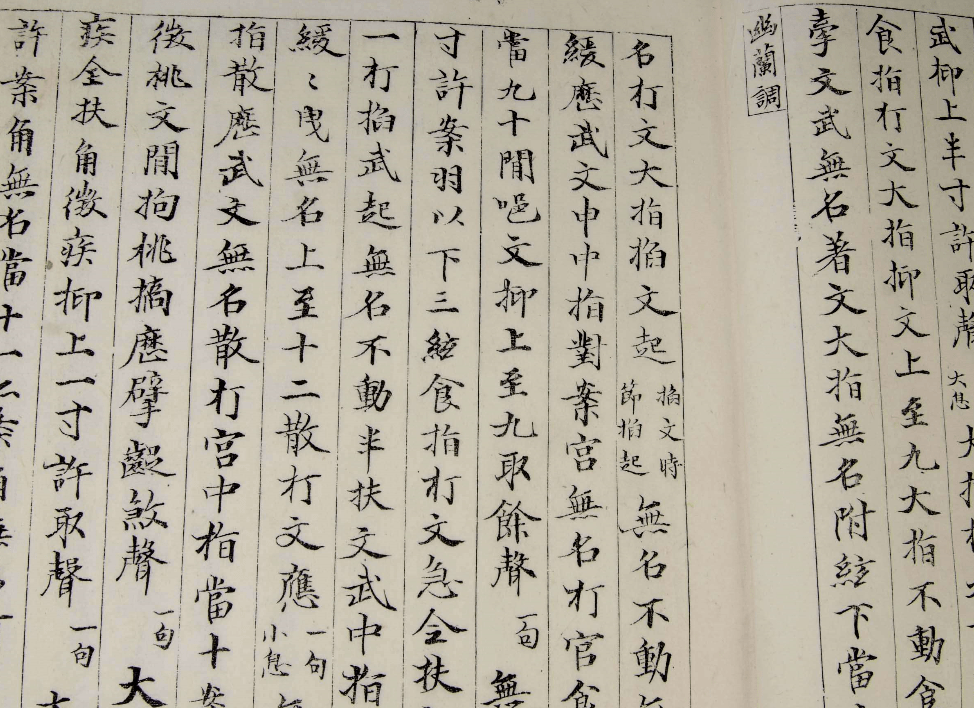 武抑上半寸許取聲大息
食指打文大指抑文上至九大指不動食
牽文武無名著文大指無名附絃下當
幽蘭調
名打文大指掐文起掐文時節拍起無名不動
緩歷武文中中指對案宮無名打宮食
當九十間吔文抑上至九取餘聲一句無
寸許案羽以下三絃食指打文急全扶
一打掐武起無名不動半扶文武中指
緩〻曳無名上至十二散打文應一句小息
指散歷武文無名散打宮中指當十案
徵挑文間拘挑擿歷擘齪煞聲一句大
疾全扶角徵疾抑上一寸許取聲一句
許案角無名當十一